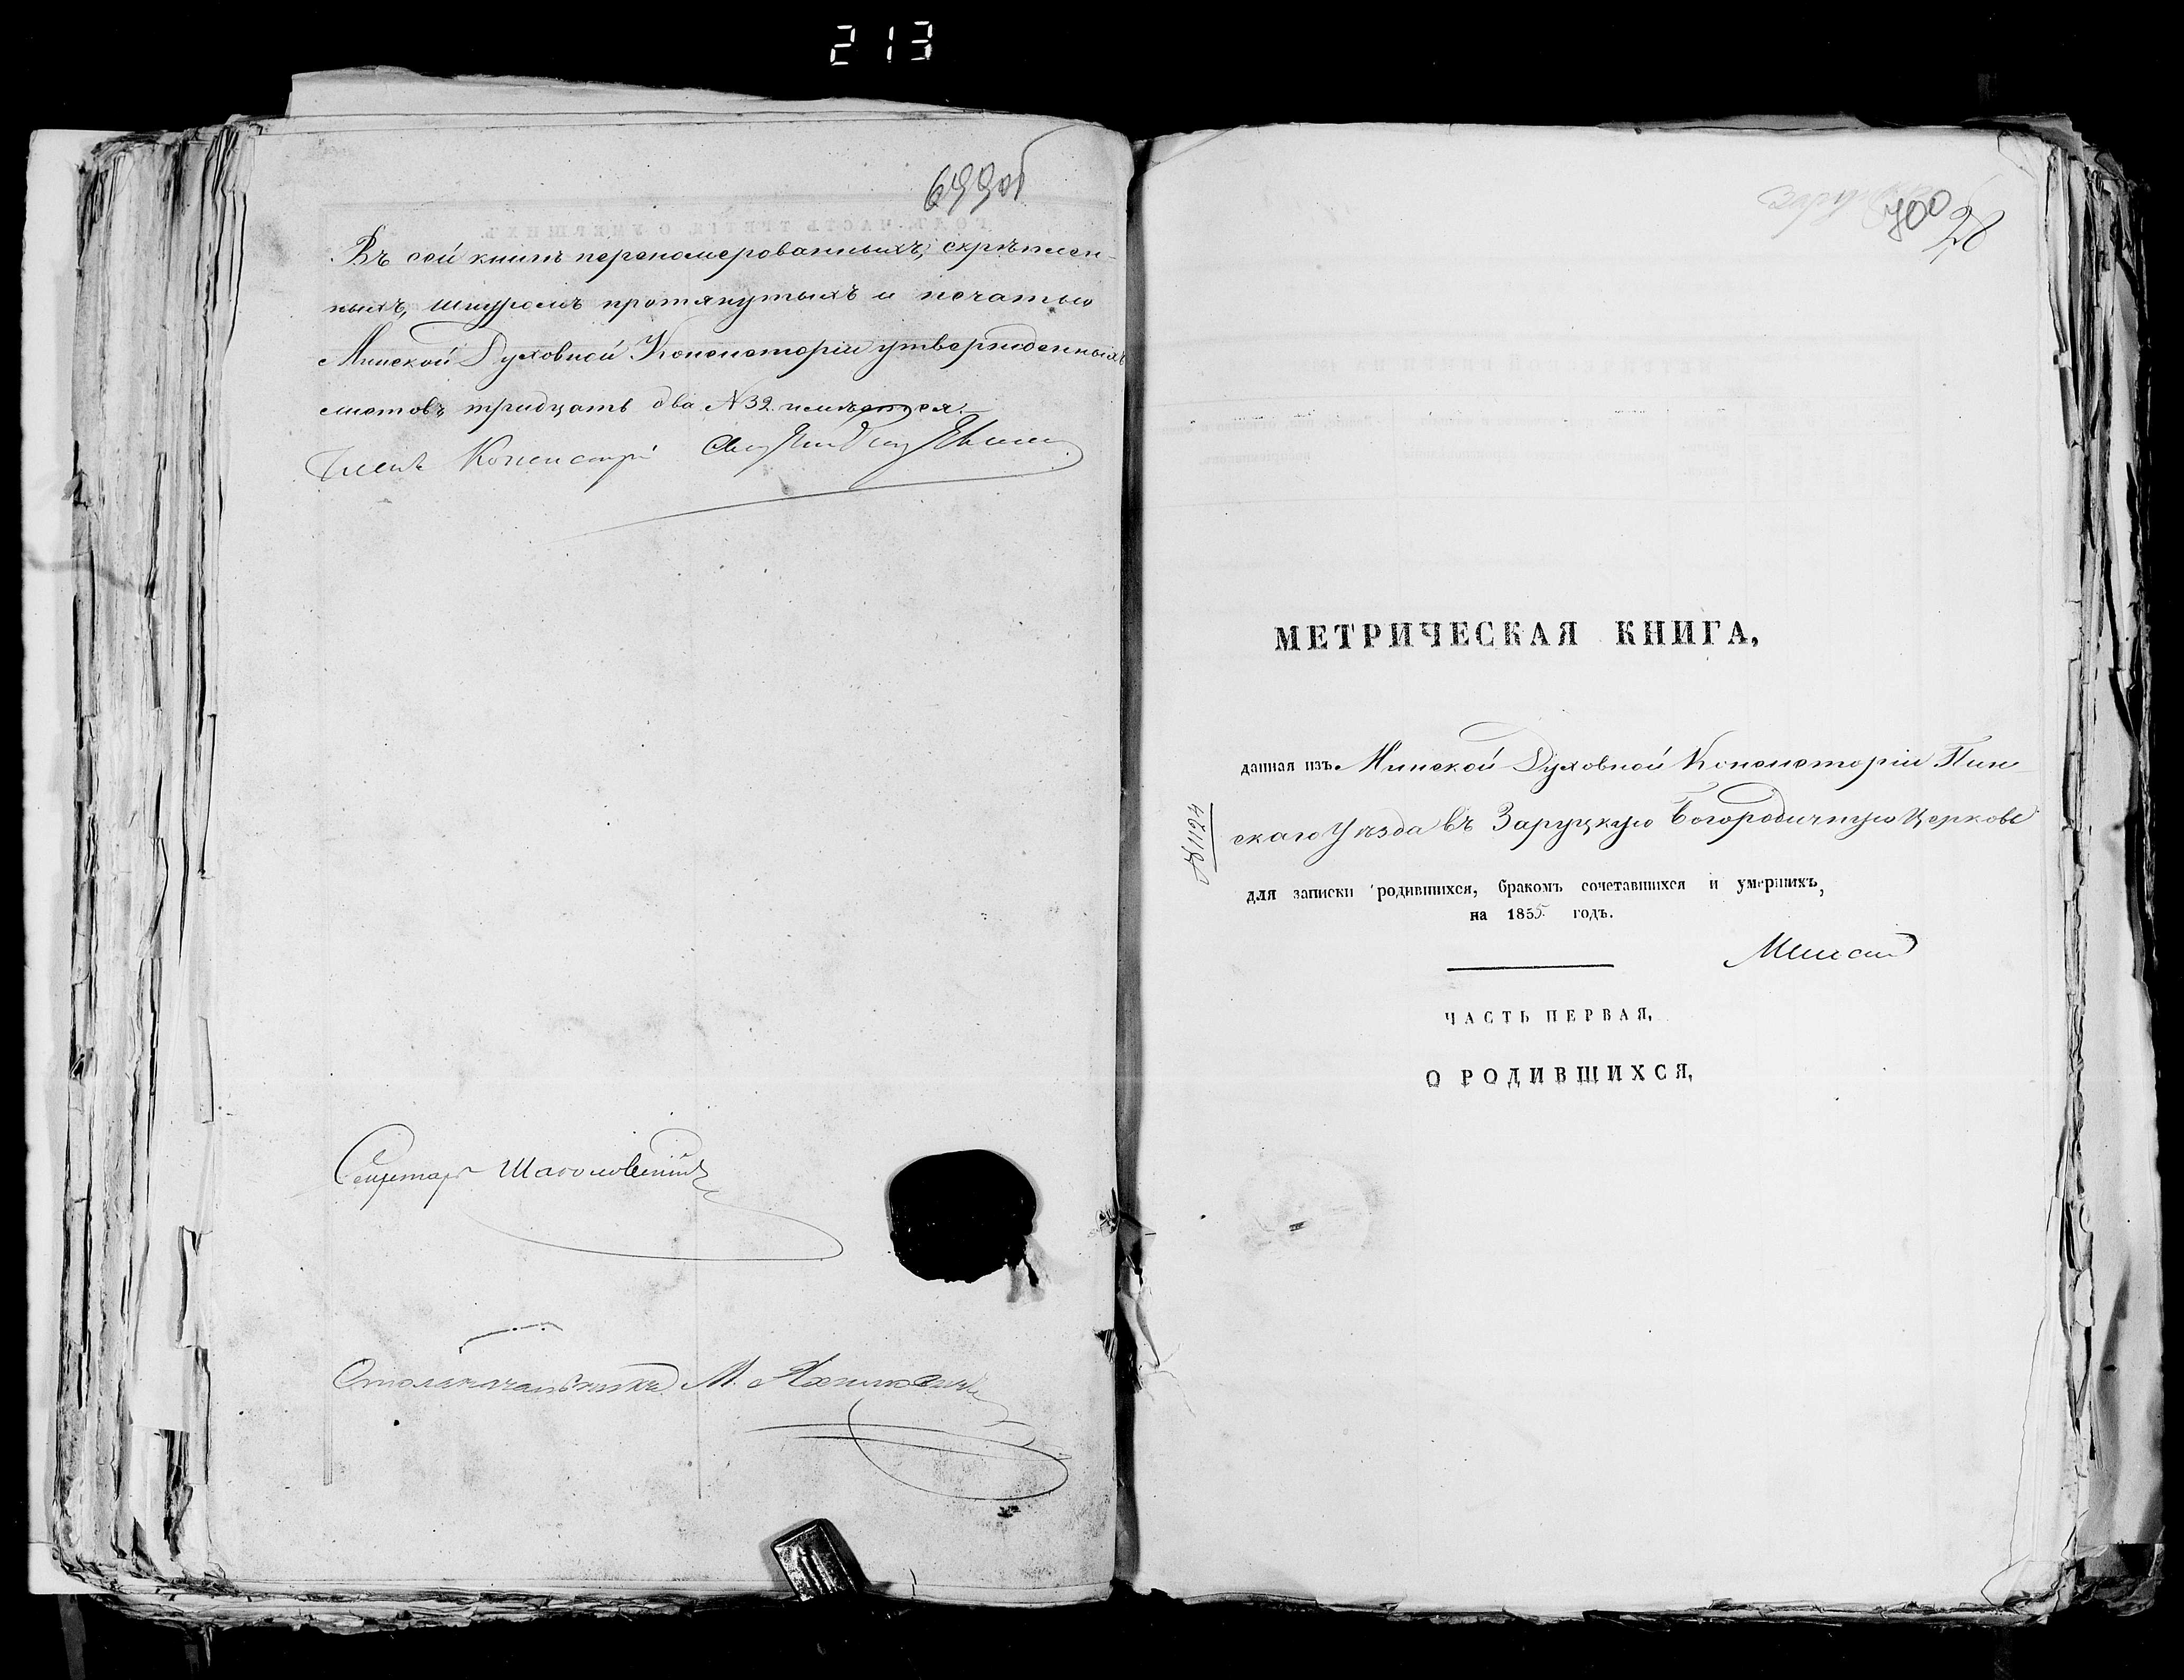 213
699об
Въ сей книгѣ перепомерованныхъ, скрѣплен-
ныхъ, шнуромъ протянутыхъ и печатью
Минской Духовной Консисторіи утвержденныхъ
листовъ тридцать два № 32. имѣется.
Членъ Консисторіи
Секретарь
Столоначальникъ М.
700
МЕТРИЧЕСКАЯ КНИГА,
данная изъ Минской Духовной Консисторіи Пин-
скаго Уѣзда въ Заруцкую Богородичную Церковь
№ 1124
для записки родившихся, бракомъ сочетавшихся и умершихъ,
на 1855 годъ.
ЧАСТЬ ПЕРВАЯ,
О РОДИВШИХСЯ,